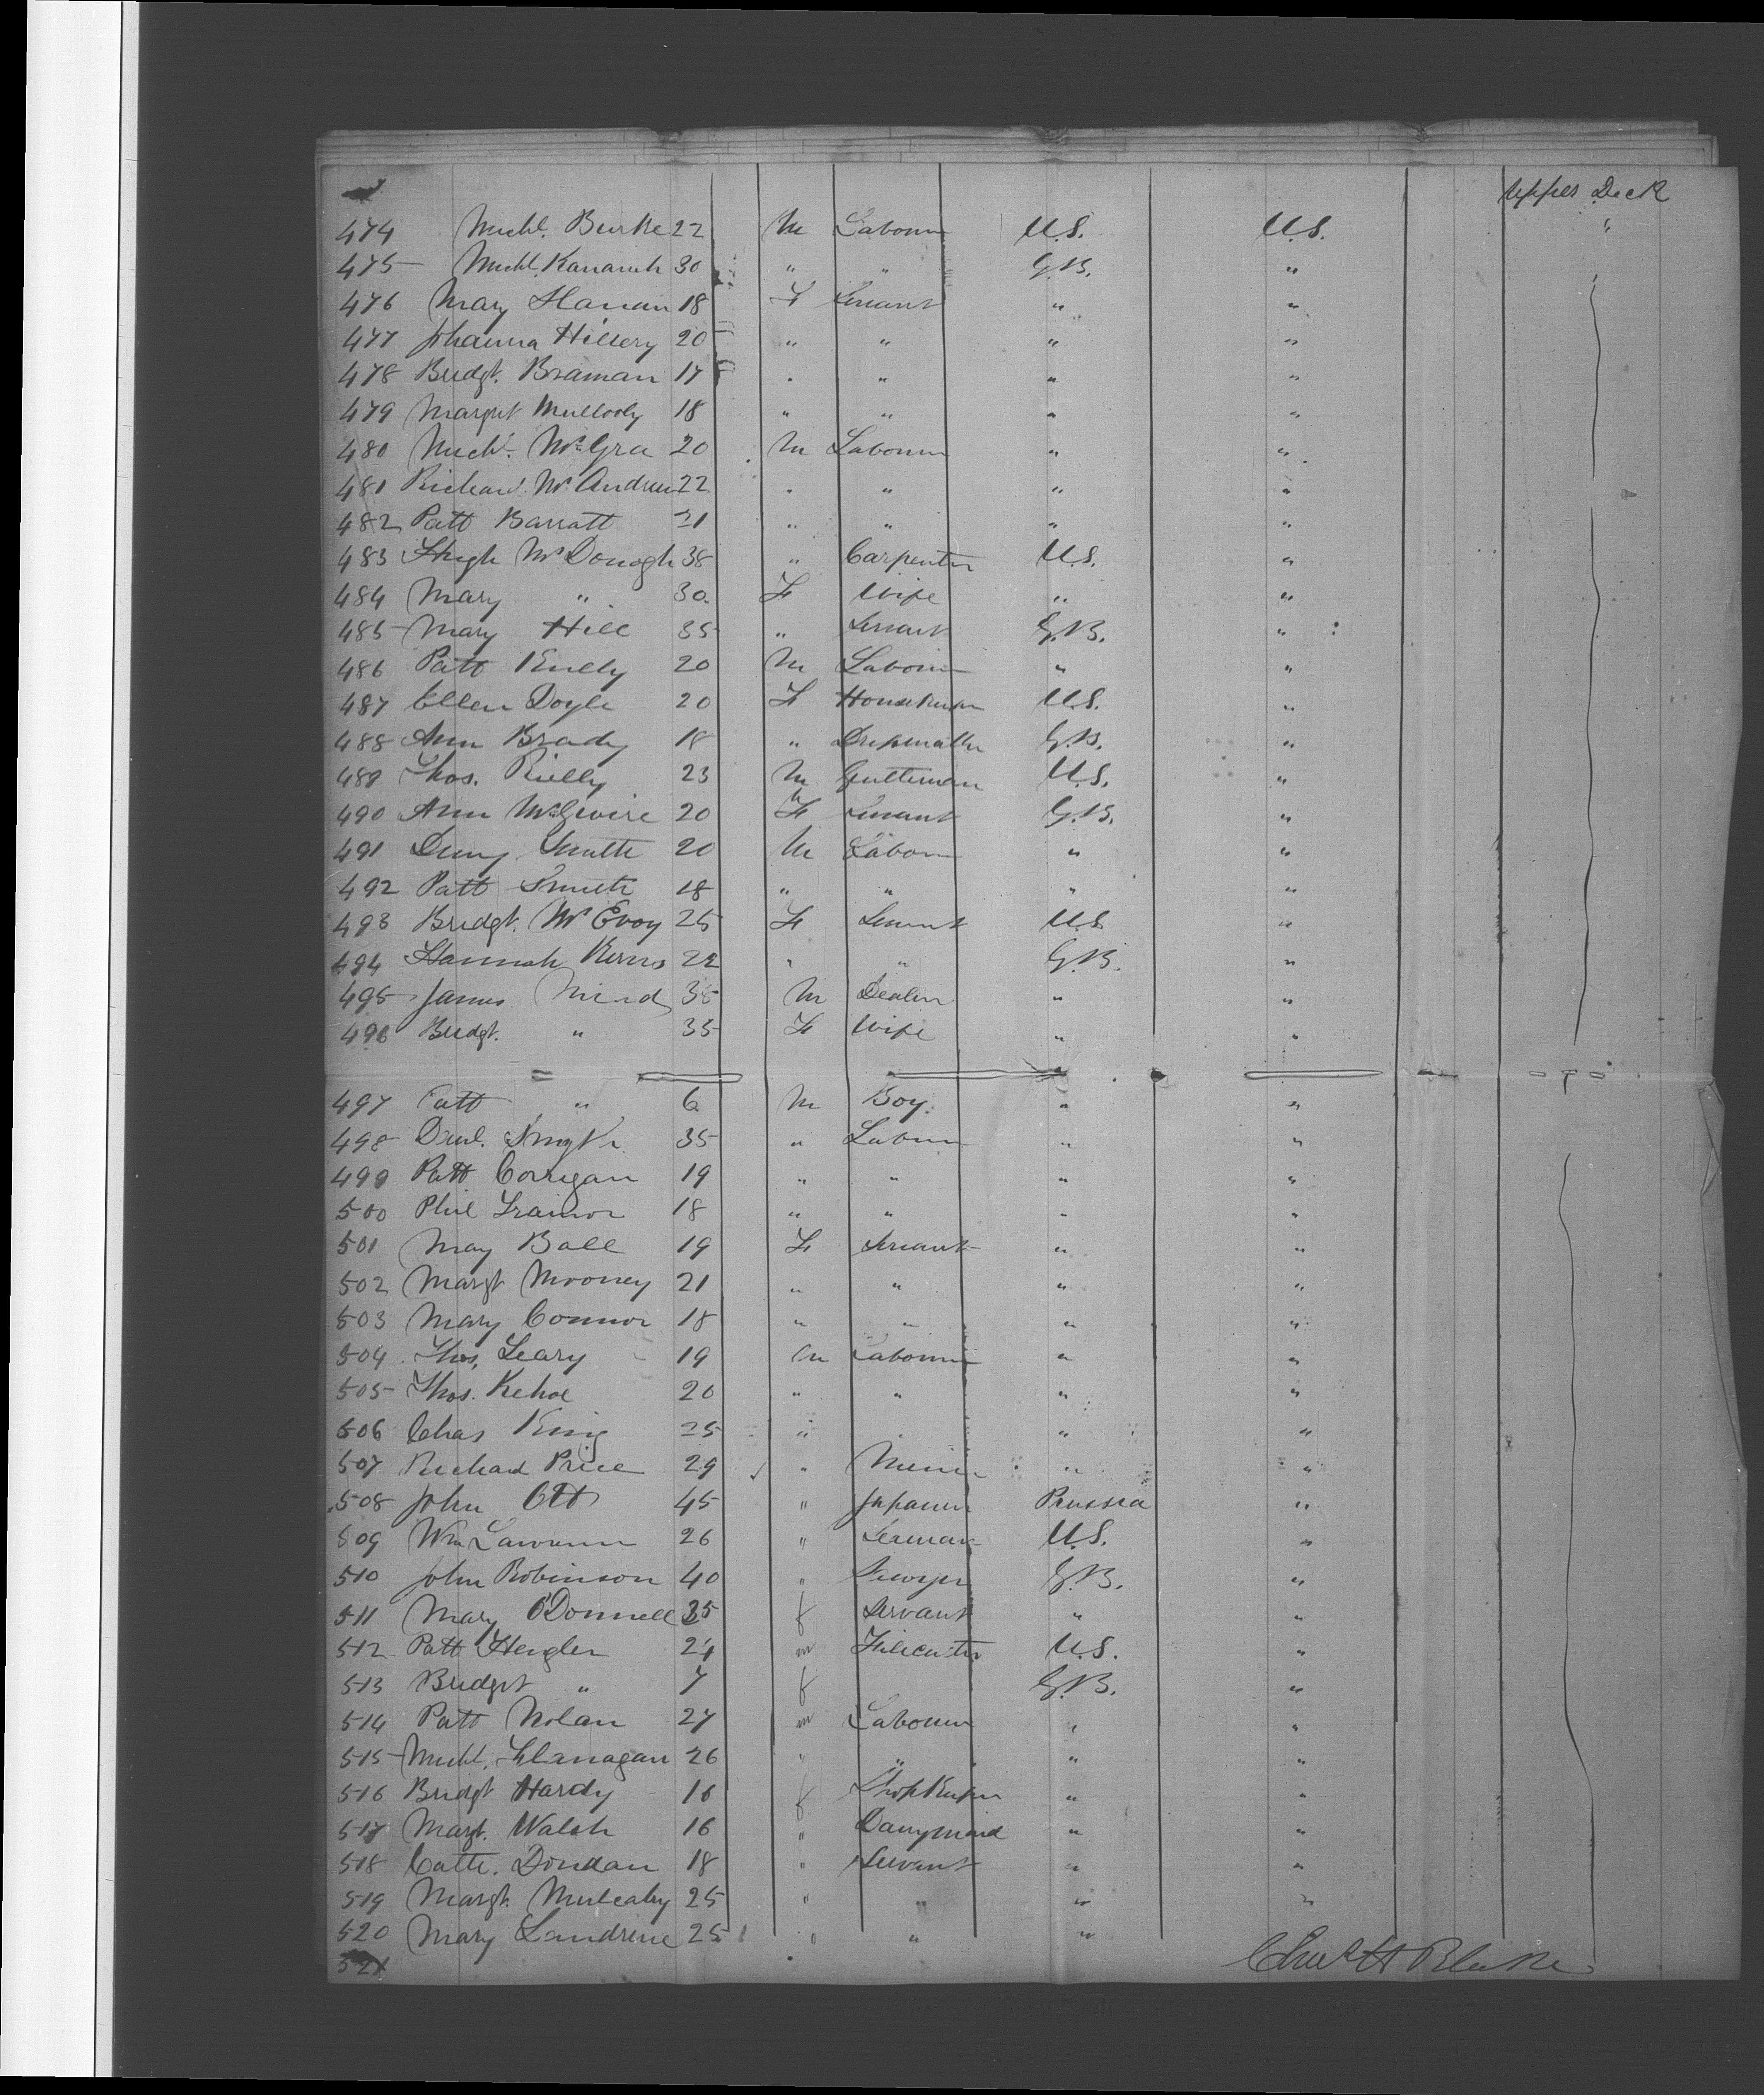 Upper Deck
474 Michl. Burke 22 M Labourer U.S. U.S. "
475 Michl. Kanavah 30 " " G.B. "
476 Mary Hanan 18 F Servant " "
477 Johanna Hillery 20 " " " "
478 Bridgt. Branan 17 " " " "
479 Margret Mullooly 18 " " " "
480 Michl. McGra 20 M Labourer " "
481 Richard McAndrew 22 " " " "
482 Patt Barratt 21 " " " "
483 Hugh McDonogh 38 " Carpenter U.S. "
484 Mary " 30 F Wife " "
485 Mary Hill 35 " Servant G.B. "
486 Patt Rielly 20 M Labourer " "
487 Ellen Doyle 20 F Housekeeper U.S. "
488 Ann Brady 18 " Dressmaker G.B. "
489 Thos. Rielly 23 M Gentleman U.S. "
490 Ann McGwire 20 F Servant G.B. "
491 Smith 20 M Labourer " "
492 Patt Smith 18 " " " "
493 Bridgt. McEvoy 25 F Servant U.S. "
494 Hannah Kerns 22 " " G.B. "
495 James 35 M Dealer " "
496 Bridgt. " 35 F Wife " "
497 Patt " 6 M Boy " "
498 Danl. 35 " Labourer " "
499 Patt Corrigan 19 " " " "
500 Phil Trainor 18 " " " "
501 May Ball 19 F Servant " "
502 Margt Mooney 21 " " " "
503 Mary Connor 18 " " " "
504 Thos. Leary 19 M Labourer " "
505 Thos. Kehoe 20 " " " "
506 Chas King 25 " " "
507 Richard Price 29 " Miner " "
508 John Ott 45 " Japaner Prussia "
509 Wm 26 " Seaman U.S. "
510 John Robinson 40 " Sawyer G.B. "
511 Mary O'Donnell 35 f Servant " "
512 Patt Heigler 24 m Filecutter U.S. "
513 Bridget " 7 f G.B. "
514 Patt Nolan 27 m Labourer " "
515 Michl. Flanagan 26 " " " "
516 Bridgt Hardy 16 f Shopkeeper " "
517 Margt. Walsh 16 " Dairymaid " "
518 Cath. Dondan 18 " Servant " "
519 Margt. Mulcahy 25 " " " "
520 Mary Landrine 25 " " "
521